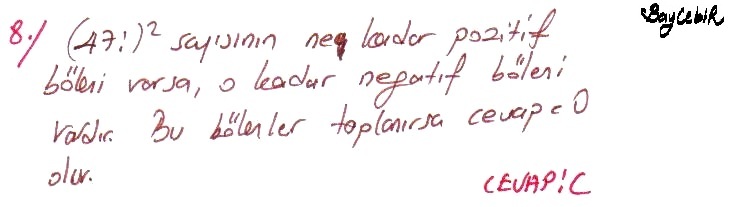 BayCebiR
8./ (47!)² sayısının ne kadar pozitif
böleni varsa, o kadar negatif böleni
vardır. Bu bölenler toplanırsa cevap = 0
olur.
CEVAP: C